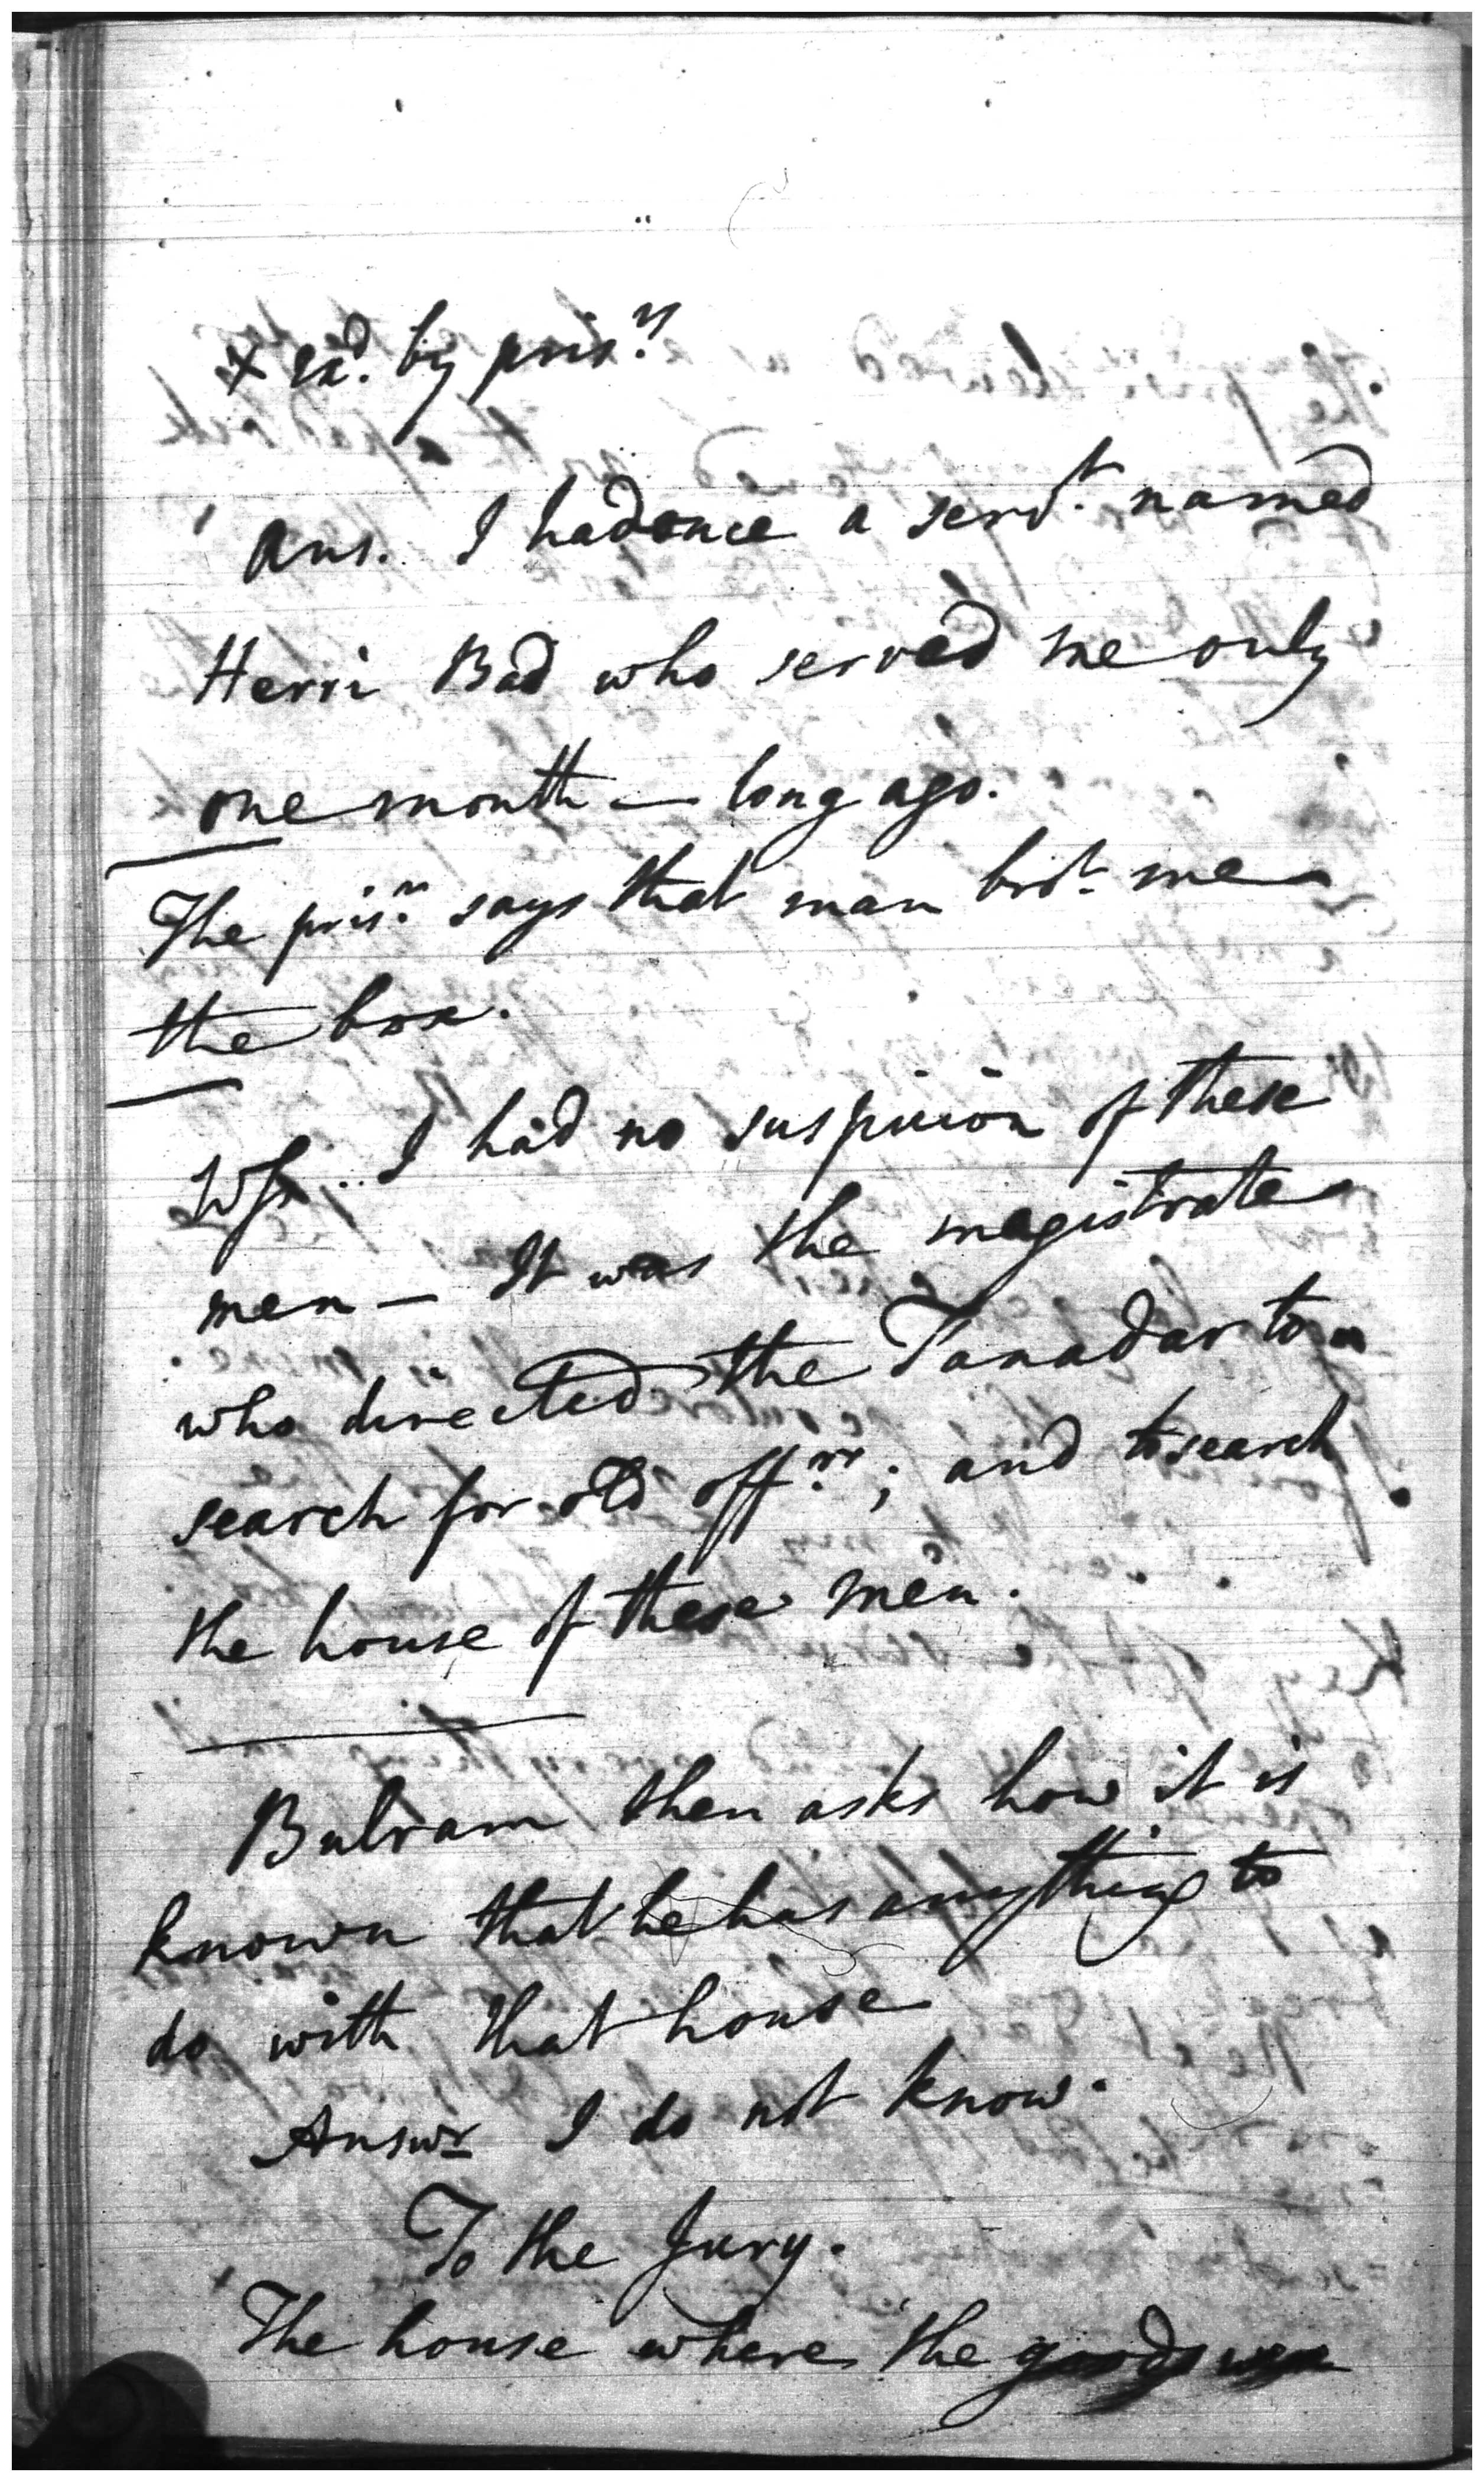 X exd. by prisrs
Ans. I had once a servt. named
Herri Bad who served me only
one month — long ago.
The prisr. says that man brot. me
the box.
Wss .. I had no suspicion of these
men — It was the magistrate
who directed the Tanadar to
search for old offrs; and to search
the house of these men.
Bulram then asks how it is
known that he has anything to
do with that house
Answr I do not know.
To the Jury.
The house where the goods were